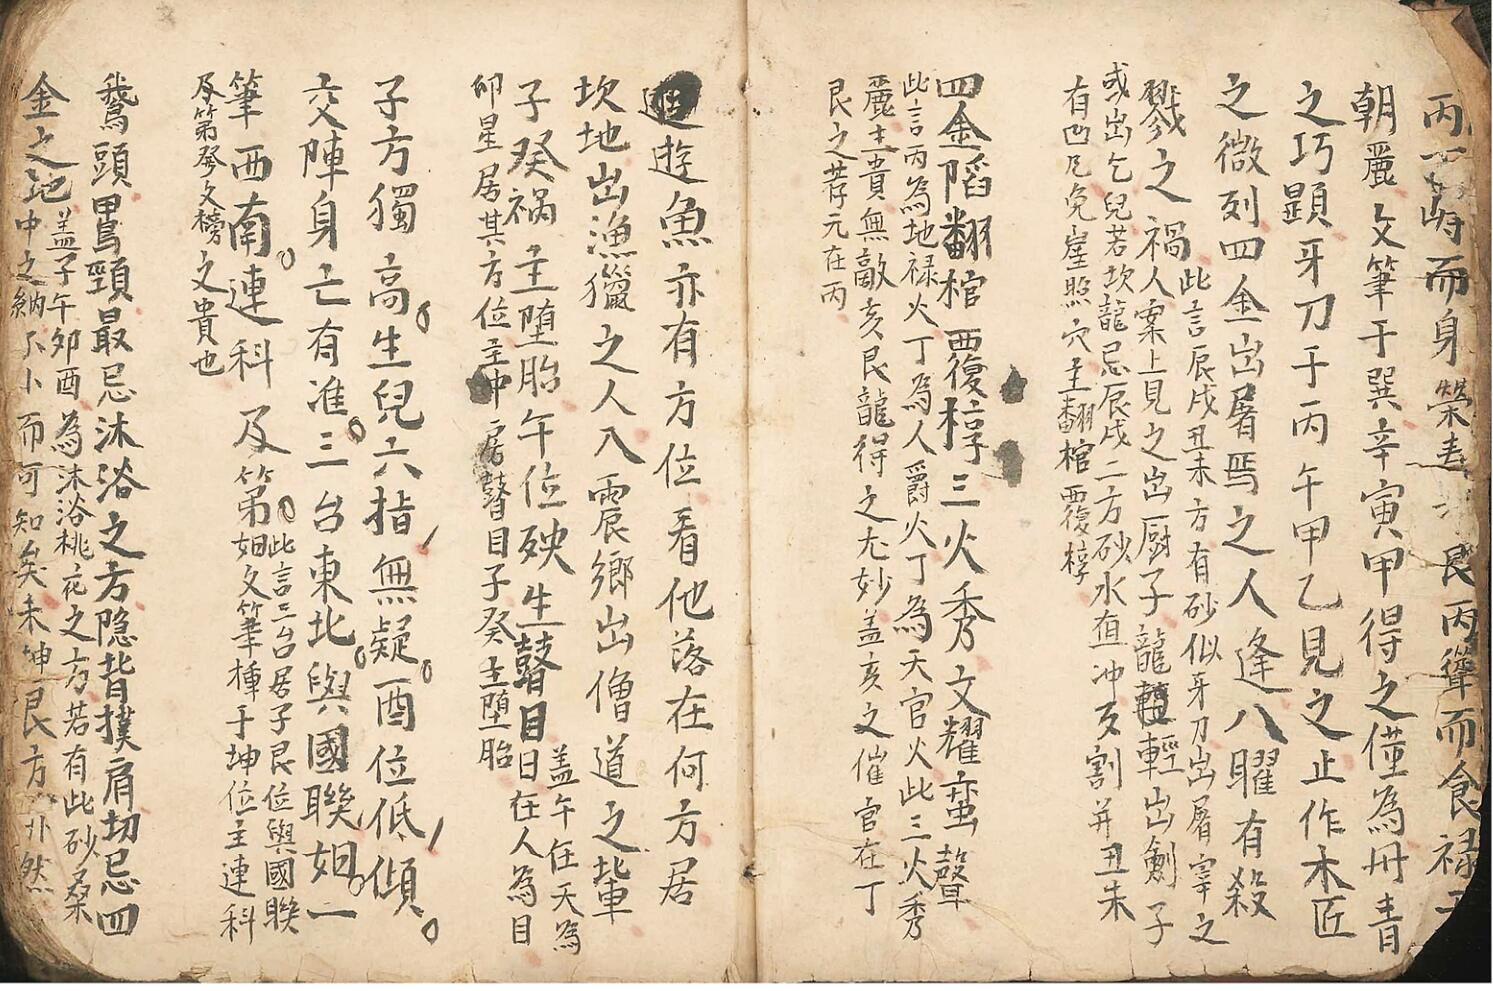 丙丁峙而身榮壽 艮丙聳而食祿
朝麗文筆于巽辛寅甲得之僅為冊青
之巧顕牙刀于丙午甲乙見之止作木匠
之微列四金出屠焉之人逢八曜有殺
戮之禍
此言辰戌丑未方有砂似牙刀出屠宰之
人案上見之出厨子龍輕輕出劊子
或出乞兒若坎龍忌辰戌二方砂水直冲及割并丑未
有凹凡免崖照穴主翻棺覆椁
四金陷翻棺覆椁三火秀文耀蜚聲
此言丙為地禄火丁為人爵火丁為天官火此三火秀
麗主貴無敵亥艮龍得之尤妙盖亥之催官在丁
艮之荐元在丙
遊魚亦有方位看他落在何方居
坎地出漁獵之人入震鄉出僧道之輩
子癸禍主墮胎午位殃生瞽目
盖午在天為
日在人為目
卯星居其方位主中房瞽目子癸主墮胎
子方獨高生兒六指無疑酉位低傾
交陣身亡有准三台東北與國聯姻一
筆西南連科及第
此言三台居子艮位與國聯
姻文筆種于坤位主連科
及第發文榜之貴也
鵞頭鴨頸最忌沐浴之方隐背撲肩切忌四
金之地
盖子午夘酉為沐浴桃花之方若有此砂桑
中之納不卜而可知矣未坤艮方 然